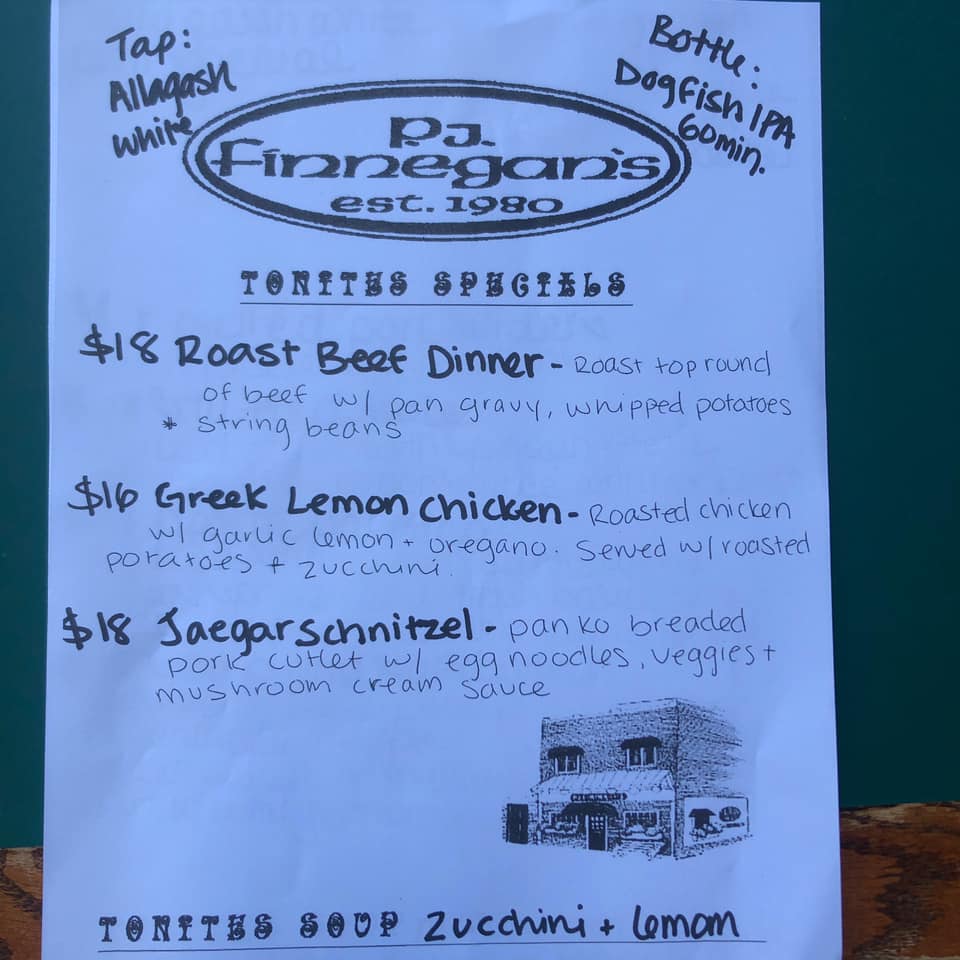 Tap:
Allagash
White
Bottle:
Dogfish IPA
60min.
P.J.
Finnegan's
est. 1980
TONITES SPECIALS
$18 Roast Beef Dinner - Roast top round
of beef w/ pan gravy, whipped potatoes
* string beans
$16 Greek Lemon Chicken - Roasted chicken
w/ garlic lemon + oregano. Served w/ roasted
potatoes + zucchini.
$18 Jaegarschnitzel - panko breaded
pork cutlet w/ egg noodles, veggies +
mushroom cream sauce
TONITES SOUP Zucchini + Lemom